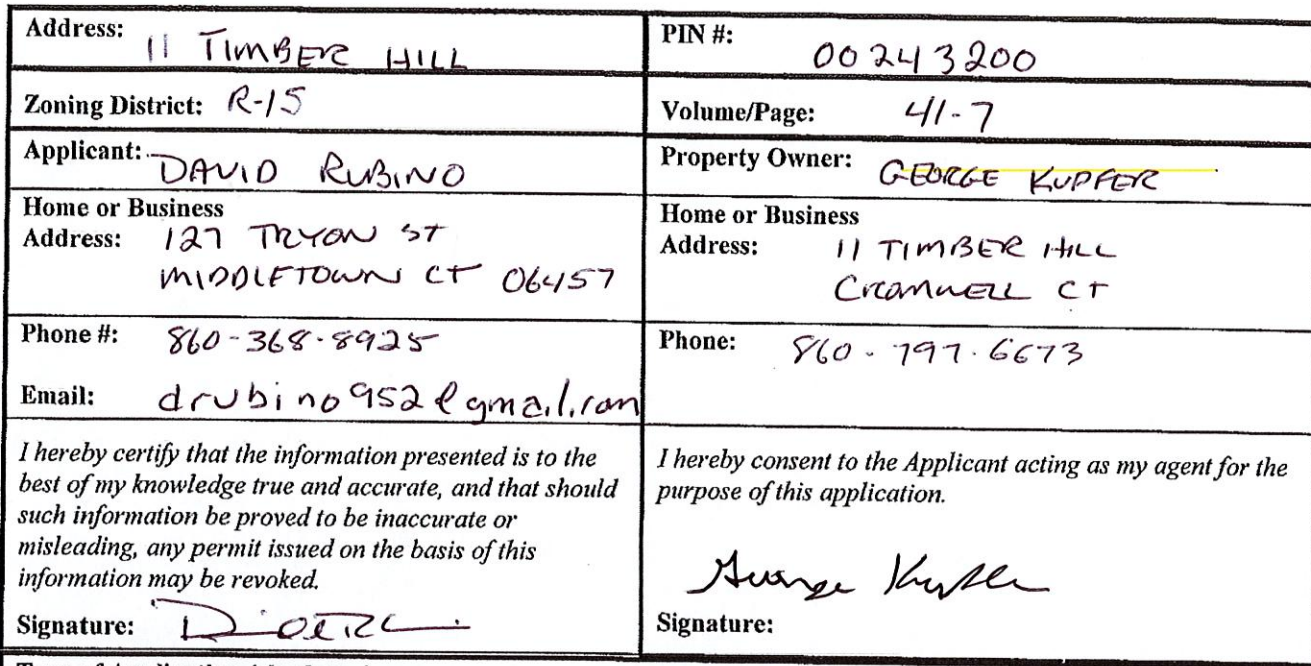 Address: 11 TIMBER HILL
PIN #: 00243200
Zoning District: R-15
Volume/Page: 41-7
Applicant: DAVID RUBINO
Property Owner: GEORGE KUPFER
Home or Business
Address: 127 TRYON ST
MIDDLETOWN CT 06457
Home or Business
Address: 11 TIMBER HILL
CROMWELL CT
Phone #: 860-368-8925
Phone: 860-797-6673
Email: drubino952@gmail.com
I hereby certify that the information presented is to the
best of my knowledge true and accurate, and that should
such information be proved to be inaccurate or
misleading, any permit issued on the basis of this
information may be revoked.
Signature:
I hereby consent to the Applicant acting as my agent for the
purpose of this application.
George Kupfer
Signature: